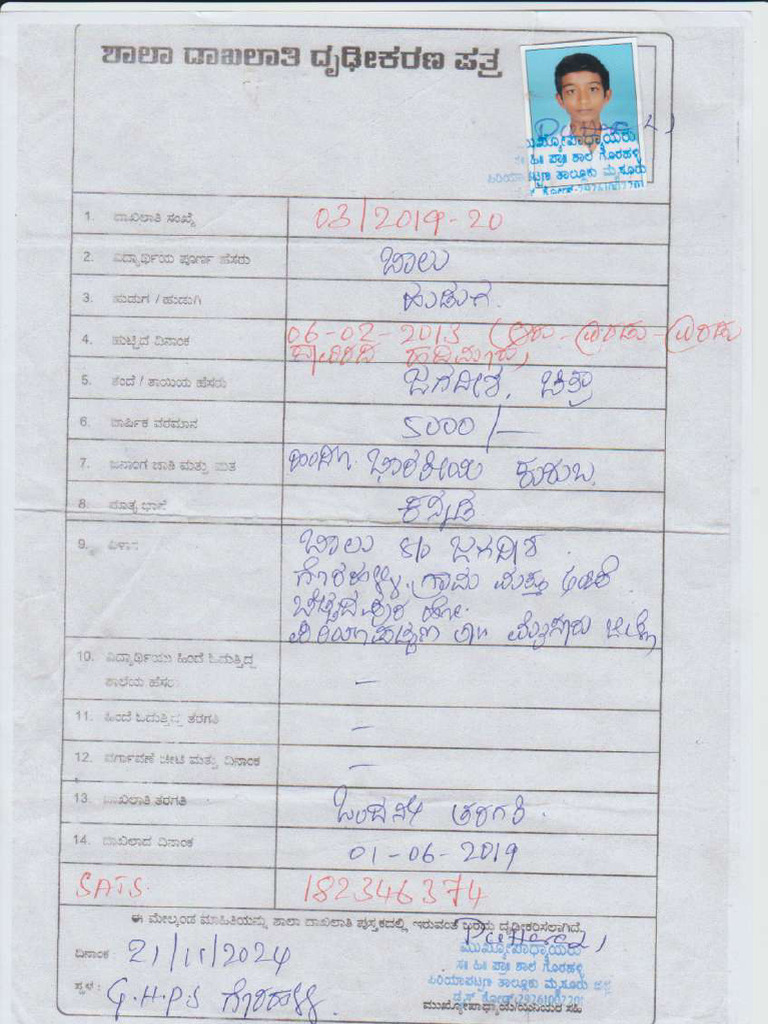 ಶಾಲಾ ದಾಖಲಾತಿ ದೃಢೀಕರಣ ಪತ್ರ
ಮುಖ್ಯೋಪಾಧ್ಯಾಯರು
ಸ ಹಿ ಪ್ರಾ ಶಾಲೆ ಗೊರಹಳ್ಳಿ
ಪಿರಿಯಾಪಟ್ಟಣ ತಾಲ್ಲೂಕು ಮೈಸೂರು
1. ದಾಖಲಾತಿ ಸಂಖ್ಯೆ 03/2019-20
2. ವಿದ್ಯಾರ್ಥಿಯ ಪೂರ್ಣ ಹೆಸರು ಬಾಲು
3. ಹುಡುಗ / ಹುಡುಗಿ ಹುಡುಗ.
4. ಹುಟ್ಟಿದ ದಿನಾಂಕ 06-02-2013 (ಆರು-ಎರಡು-ಎರಡು
ಸಾವಿರದ ಹದಿಮೂರು)
5. ತಂದೆ / ತಾಯಿಯ ಹೆಸರು ಜಗದೀಶ, ಚಿತ್ರಾ
6. ವಾರ್ಷಿಕ ವರಮಾನ 5000/-
7. ಜನಾಂಗ ಜಾತಿ ಮತ್ತು ಮತ ಹಿಂದೂ ಭಾರತೀಯ ಕುರುಬ
8. ಮಾತೃ ಭಾಷೆ ಕನ್ನಡ
9. ವಿಳಾಸ ಬಾಲು S/o ಜಗದೀಶ
ಗೊರಹಳ್ಳಿ ಗ್ರಾಮ ಮತ್ತು ಅಂಚೆ
ಬೆಟ್ಟದಪುರ ಹೋ.
ಪಿರಿಯಾಪಟ್ಟಣ ತಾ॥ ಮೈಸೂರು ಜಿಲ್ಲೆ
10. ವಿದ್ಯಾರ್ಥಿಯು ಹಿಂದೆ ಓದುತ್ತಿದ್ದ
ಶಾಲೆಯ ಹೆಸರು —
11. ಹಿಂದೆ ಓದುತ್ತಿದ್ದ ತರಗತಿ —
12. ವರ್ಗಾವಣೆ ಚೀಟಿ ಮತ್ತು ದಿನಾಂಕ —
13. ದಾಖಲಾತಿ ತರಗತಿ ಒಂದನೇ ತರಗತಿ.
14. ದಾಖಲಾದ ದಿನಾಂಕ 01-06-2019
SATS. 182346374
ಈ ಮೇಲ್ಕಂಡ ಮಾಹಿತಿಯನ್ನು ಶಾಲಾ ದಾಖಲಾತಿ ಪುಸ್ತಕದಲ್ಲಿ ಇರುವಂತೆ ಬರೆದು ದೃಢೀಕರಿಸಲಾಗಿದೆ.
ದಿನಾಂಕ : 21/11/2024
ಮುಖ್ಯೋಪಾಧ್ಯಾಯರು
ಸ ಹಿ ಪ್ರಾ ಶಾಲೆ ಗೊರಹಳ್ಳಿ
ಪಿರಿಯಾಪಟ್ಟಣ ತಾಲ್ಲೂಕು ಮೈಸೂರು ಜಿಲ್ಲೆ
ಸ್ಥಳ : G.H.P.S ಗೊರಹಳ್ಳಿ
ಮುಖ್ಯೋಪಾಧ್ಯಾಯ/ಯಿನಿಯರ ಸಹಿ